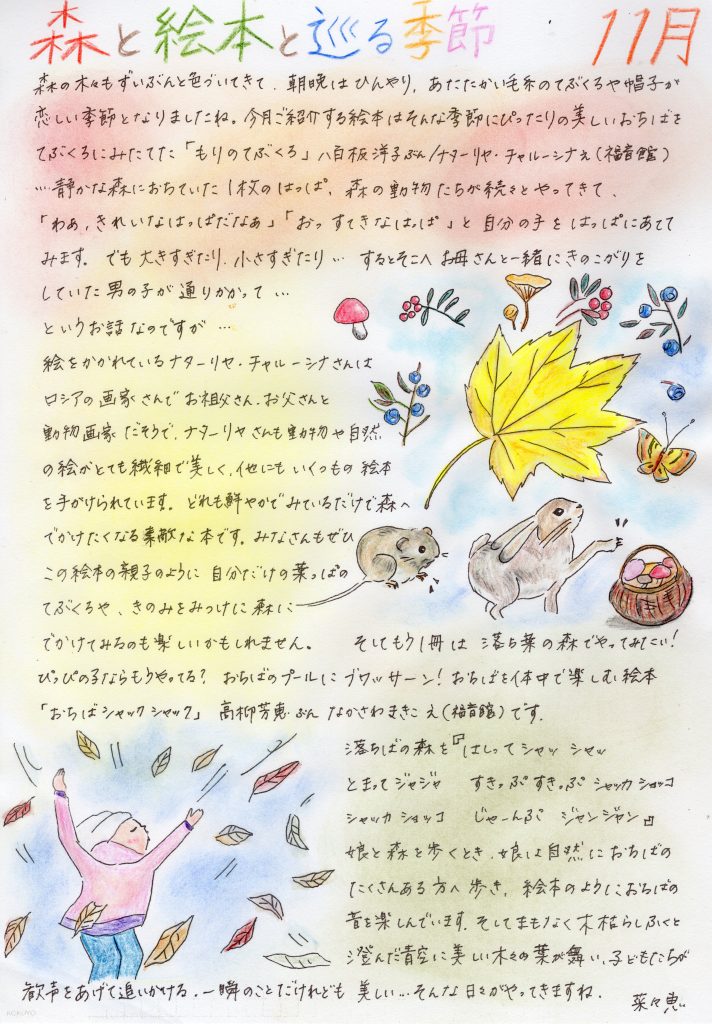 森と絵本と巡る季節 11月
森の木々もずいぶんと色づいてきて、朝晩はひんやり、あたたかい毛糸のてぶくろや帽子が
恋しい季節となりましたね。今月ご紹介する絵本はそんな季節にぴったりの美しいおちばを
てぶくろにみたてた「もりのてぶくろ」八百板洋子ぶん/ナターリヤ・チャルーシナえ(福音館)
…静かな森におちていた1枚のはっぱ、森の動物たちが続々とやってきて、
「わぁ、きれいなはっぱだなぁ」「おっ すてきなはっぱ」と自分の手をはっぱにあてて
みます。でも大きすぎたり、小さすぎたり… するとそこへお母さんと一緒にきのこがりを
していた男の子が通りかかって…
というお話なのですが…
絵をかかれているナターリヤ・チャルーシナさんは
ロシアの画家さんでお祖父さん、お父さんと
動物画家だそうで、ナターリヤさんも動物や自然
の絵がとても繊細で美しく、他にもいくつもの絵本
を手がけられています。どれも鮮やかでみているだけで森へ
でかけたくなる素敵な本です。みなさんもぜひ
この絵本の親子のように自分だけの葉っぱの
てぶくろや、きのみをみつけに森に
でかけてみるのも楽しいかもしれません。 そしてもう1冊は落ち葉の森でやってみたい!
ぴっぴの子ならもうやってる? おちばのプールにブワッサーン! おちばを体中で楽しむ絵本
「おちばシャックシャック」高柳芳恵ぶん なかさわまきこえ(福音館)です。
落ちばの森を『はしってシャッ シャッ
とまってジャジャ すきっぷすきっぷ シャッカショッコ
シャッカショッコ じゃーんぷ ジャンジャン』
娘と森を歩くとき、娘は自然におちばの
たくさんある方へ歩き、絵本のようにおちばの
音を楽しんでいます。そしてまもなく木枯らしふくと
澄んだ青空に美しい木々の葉が舞い、子どもたちが
歓声をあげて追いかける。一瞬のことだけれども 美しい…そんな日々がやってきますね。
菜々恵
KOKUYO